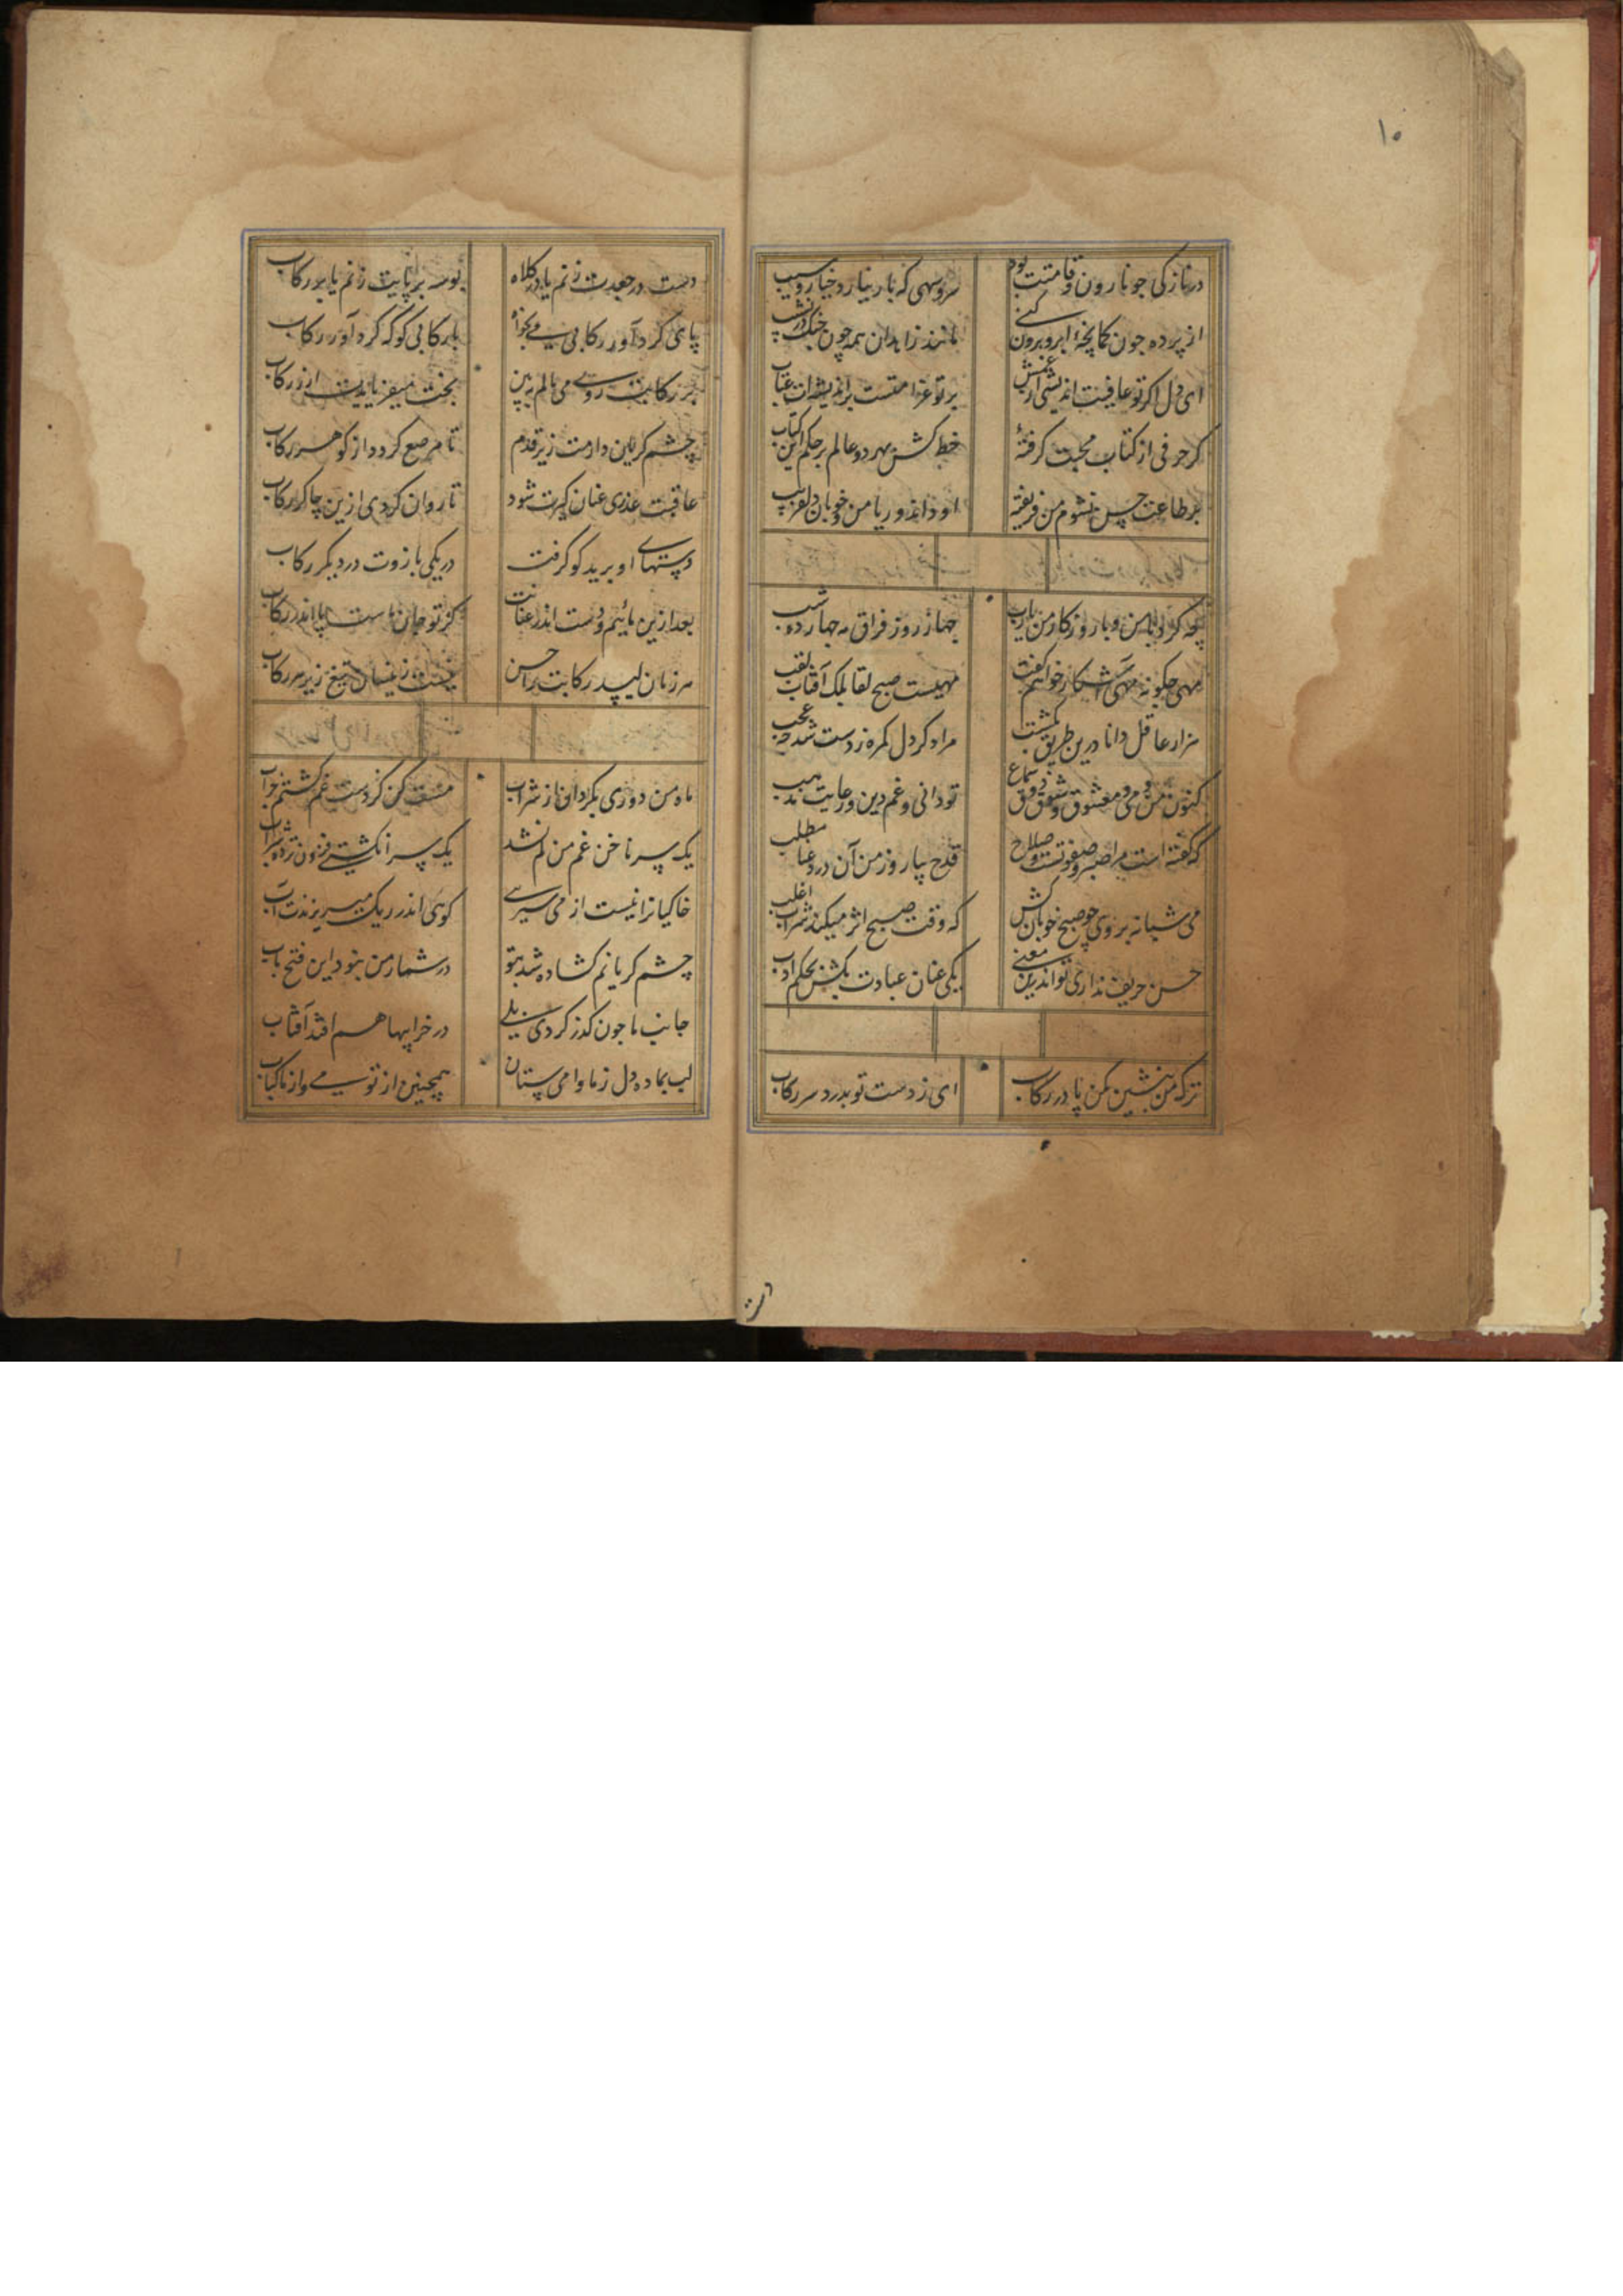 ۱۰
در نازکی چو نارون قامتت بود سرو سهی که بار نیارد خیار و سیب
از پرده چون کمانچهٔ ابرو برون کنی مانند زاهدان همه چون چنک در نشیب
ای دل اگر تو عافیت اندیشی از غمش بر تو غرامتست بر اندیشه‌ات عتاب
گر حرفی از کتاب محبت گرفتهٔ خط کش بهر دو عالم بر حکم این کتاب
بر طاعت حسن نشوم من فریفته او داند و ریا من و خوبان دلفریب
چه کرد با من و با روزگار من یارب چهار روز فراق مه چهارده شب
مهی چگونه مهی آشکار خواهم گفت مهیست صبح لقا بلک آفتاب لقب
هزار عاقل دانا درین طریق بگشت مرا که دل گمره ز دست شد چه عجب
کنون من و می و معشوق و شوق و ذوق و سماع تو دانی و غم دین و رعایت مذهب
که گفته است مرا صبر و صفوتست و صلاح قدح بیار و ز من آن در دعا مطلب
می شبانه بروی چو صبح خوبان کش که وقت صبح اثر میکند شراب اغلب
حسن حریف نداری تو اندرین معنی یکی عنان عبادت بکش بحکم ادب
ترک من بنشین مکن پا در رکاب ای ز دست تو بدرد سر رکاب
دست
دست در جعدت زنم یا در کلاه بوسه بر پایت زنم یا بر رکاب
پای گرد آور رکابی می بخواه با رکابی گو که گرد آور رکاب
بر رکابت روی می مالم ببین بخت میفزایدت از زر رکاب
چشم گریان دارمت زیر قدم تا مرصع گردد از گوهر رکاب
عاقبت عذری عنان گیرت شود تا روان کردی ازین چاکر رکاب
دستهای او برید کو گرفت در یکی بازوت در دیگر رکاب
بعد ازین مائیم و دست اندر عنانت کز تو جان است پا اندر رکاب
هر زمان لیسد رکابت را حسن نیست زینسان تیغ زیر سر رکاب
ماه من دوری بگردان از شراب مست کن کز دست غم گشتم خراب
یک سر ناخن غم من کم نشد یک سر انگشتی فزون تر ده شراب
خاکیانرا نیست از می سیریی گوئی اندر ریک میریزند آب
چشم گریانم گشاده شد بتو در شمار من نبود این فتح باب
جانب ما چون گذر کردی بلی در خرابیها هم افتد آفتاب
لب بما ده دل ز ما وا می ستان همچنین از تو می و از ما کباب